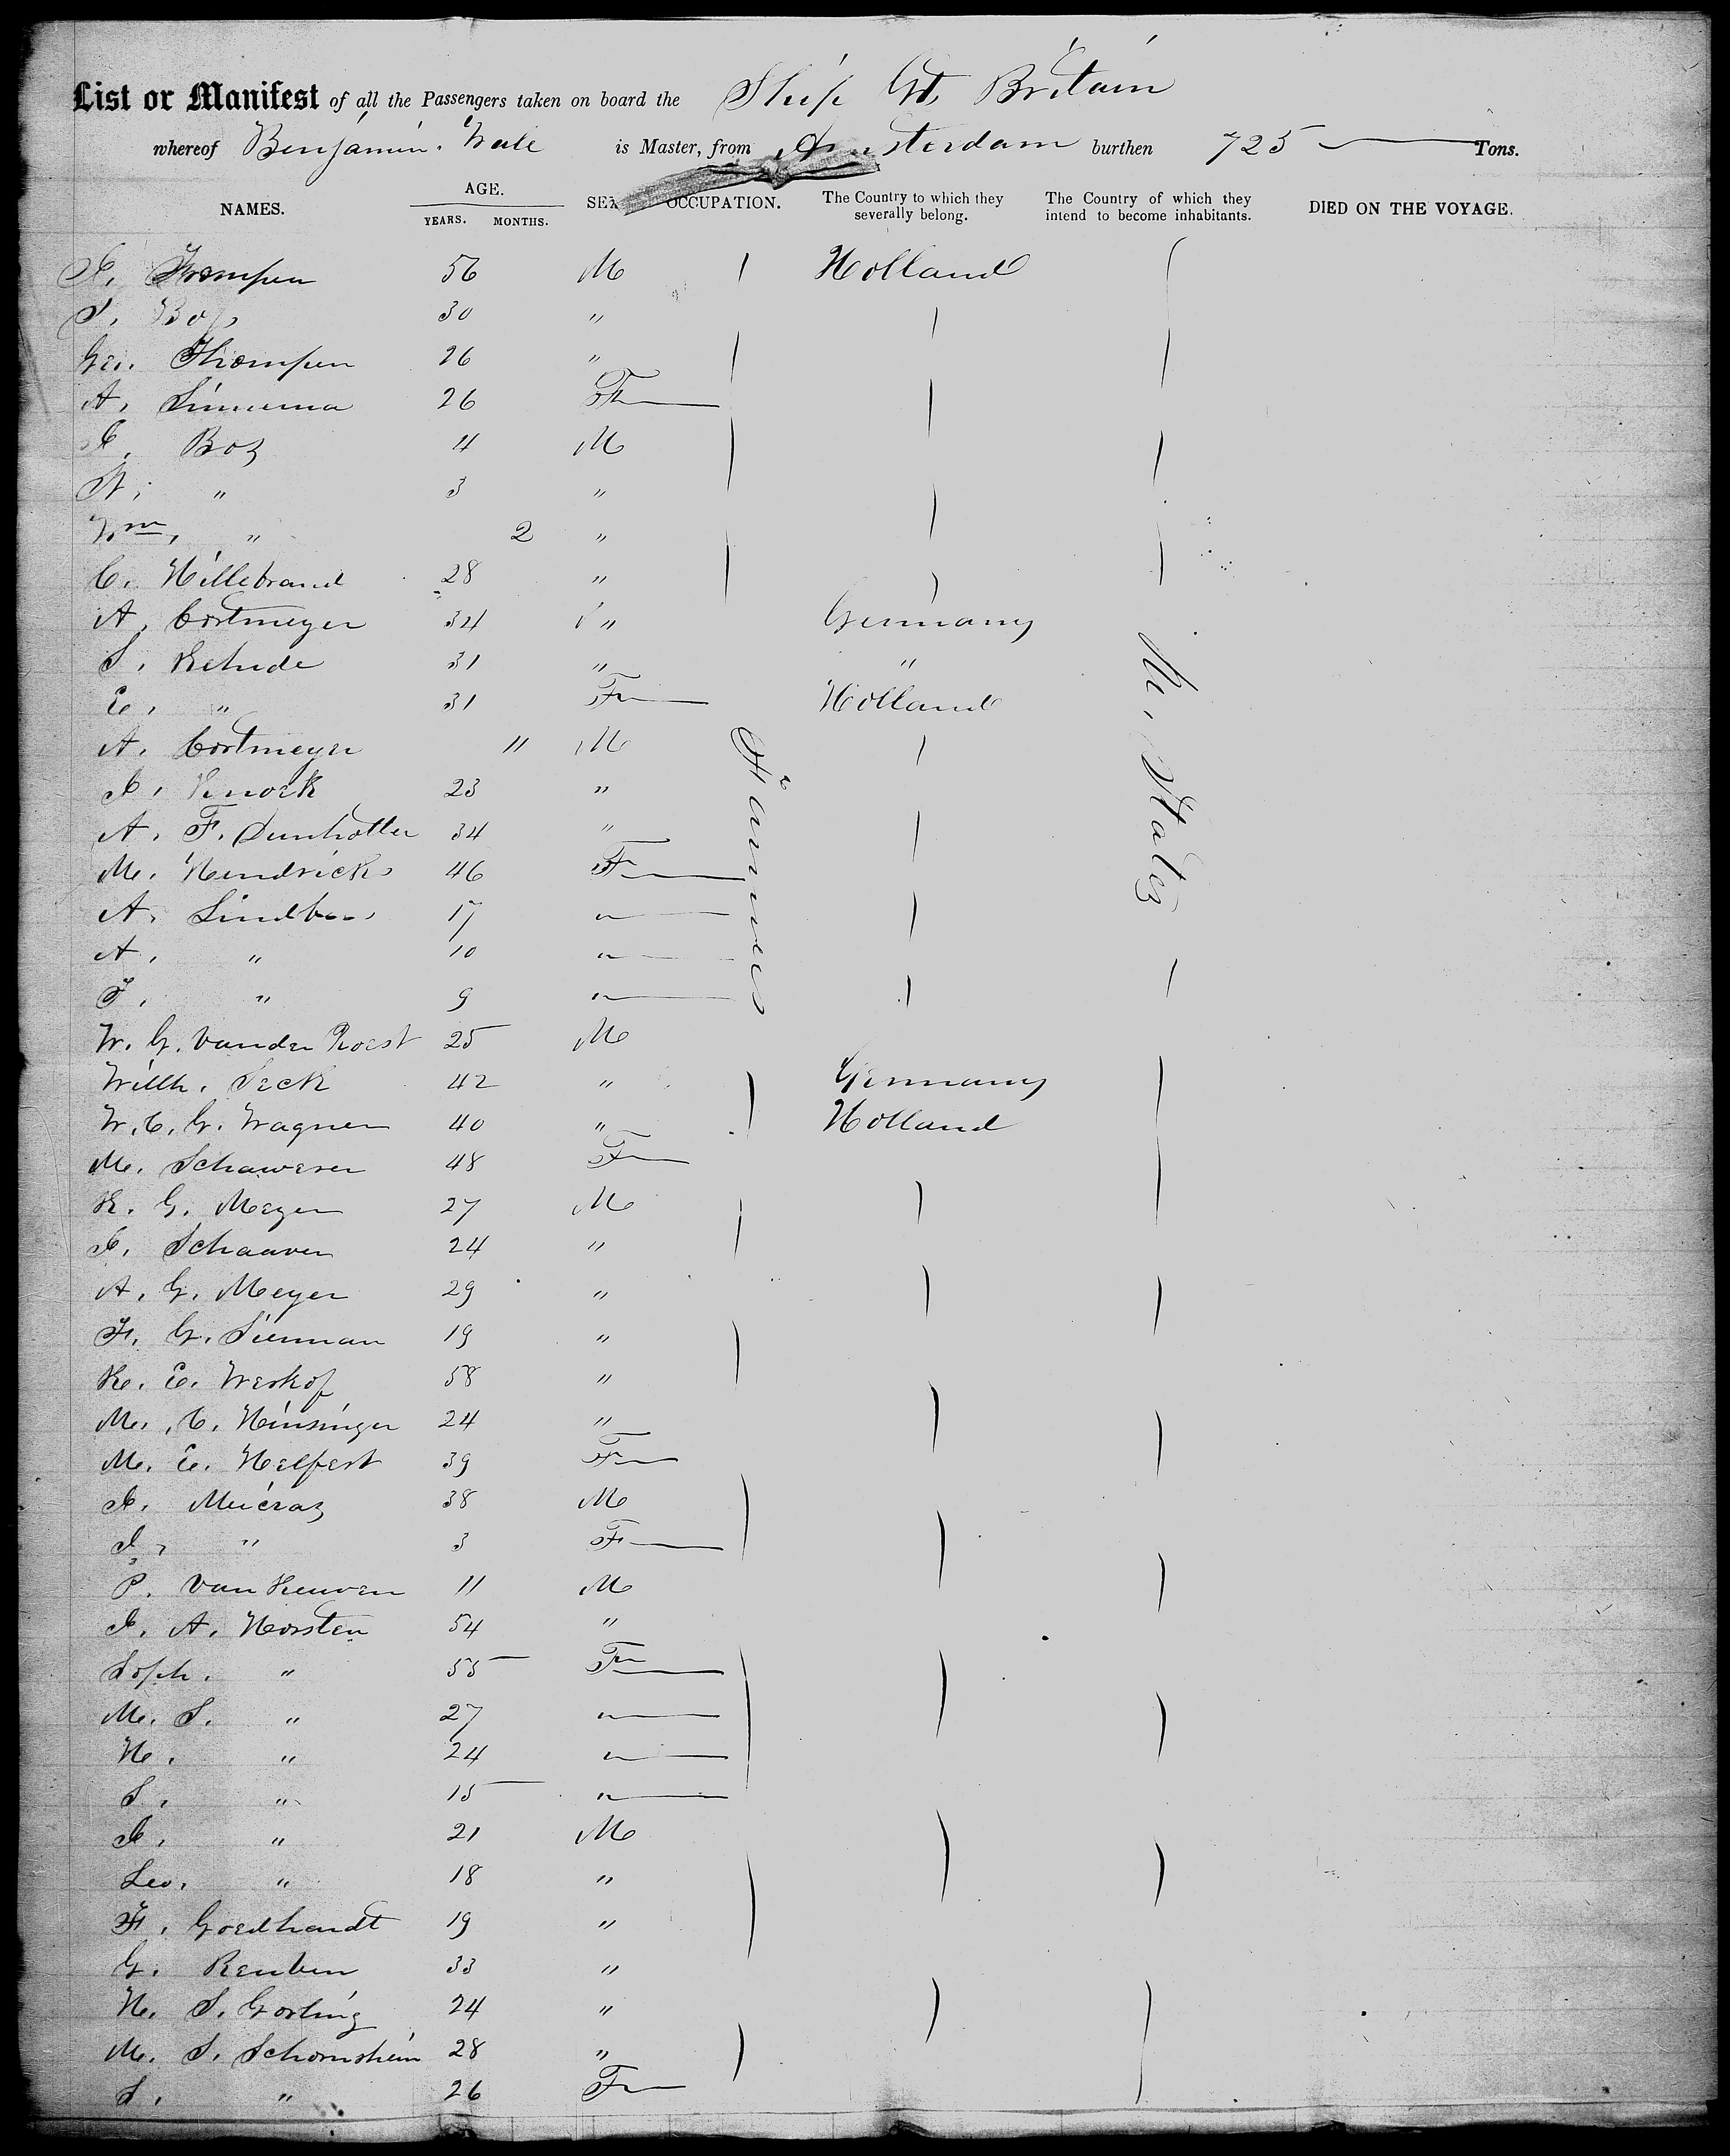 List or Manifest of all the Passengers taken on board the Ship Gt. Britain
whereof Benjamin is Master, from Amsterdam burthen 725 Tons.
NAMES. AGE. YEARS. MONTHS. SEX OCCUPATION. The Country to which they severally belong. The Country of which they intend to become inhabitants. DIED ON THE VOYAGE.
56 M Holland
30 "
Geo. Thompsen 26 "
A. 26 F
Boz 4 M
" 3 "
Wm, " 2 "
C. Hillebrand 28 "
A. Cortmeyer 34 " Germany
S. 31 " "
E. " 31 F Holland
A. Cortmeyer 11 M
J. Knock 23 "
A. F. 34 "
M. Hendricks 46 F
A. 17 "
A. " 10 "
F. " 9 "
W. G. vander Roest 25 M
Willh. Seck 42 " Germany
W. C. G. Wagner 40 " Holland
M. Schawerer 48 F
K. G. Meyer 27 M
J. Schaaver 24 "
A. G. Meyer 29 "
F. G. 19 "
K. E. Weskof 58 "
M. C. Heinsinger 24 "
M. E. Helfert 39 F
J. 38 M
J. " 3 F
P. van 11 M
J. A. Horsten 54 "
Soph. " 55 F
M. S. " 27 "
H. " 24 "
S. " 15 "
J. " 21 M
Leo. " 18 "
F. Goedhandt 19 "
G. Reuben 33 "
H. S. Gorling 24 "
M. S. Schornshein 28 "
S. " 26 F
Farmers
U. States